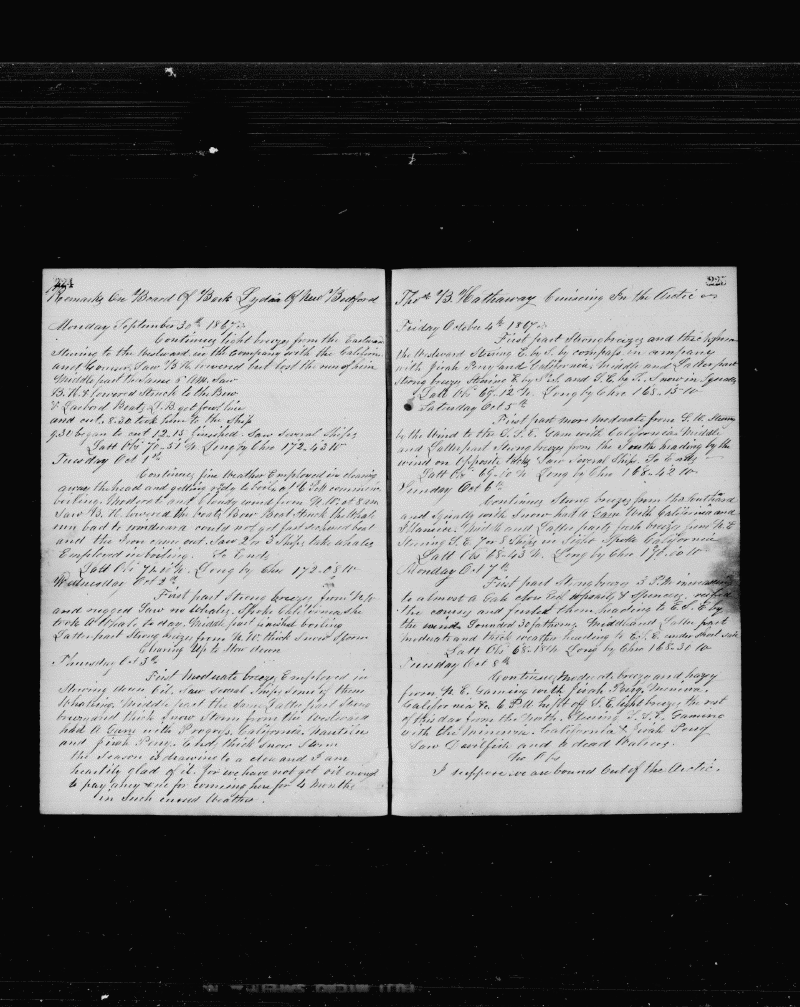 224
Remarks On Board Of Bark Lydia Of New Bedford
Monday September 30th 1867
Continues light breezes from the Eastward
Steering to the Westward in the Company with the California
and Saw B.H. lowered but lost the run of him
Middle part the Same 5 AM Saw
B.H. & lowered Struck to the Bow
& Larbord Boats L.B. got foul line
and cut. 8.30 took him to the Ship
9.30 began to cut 12.15 finished. Saw Several Ships
Latt Obs 70-31 N. Long by Chro 172-43 W
Tuesday Oct 1st
Continues fine Weather Employed in clearing
away the head and getting ready to boil, at 6 P.M commence
boiling. Moderate and cloudy wind from N.W. at 8 AM
Saw B.H. lowered the boats, Bow Boat Struck the Whale
run bad to windward could not get fast second boat
and the Iron came out. Saw 2 or 3 Ships take whales
Employed in boiling. So Ends
Latt Obs 70- N. Long by Chro 172-08 W
Wednesday Oct 2nd
First part Strong breezes from N
and rugged Saw no Whales. Spoke California she
took a Whale to day. Middle part finished boiling
Latter part Strong breezes from N.W. thick Snow Storm
Clearing Up to Stow down
Thursday Oct 3rd
First Moderate breezes, Employed in
Stowing down Oil. Saw Several Ships some of them
Whaling. Middle part the Same Latter part Strong
breezes and thick Snow Storm from the Westward
had a Gam with Progress, California, Nautilus
and Jireh Perry. Ends thick Snow Storm
the Season is drawing to a close and I am
heartily glad of it. for we have not got oil enough
to pay any one for coming here for 4 months
in such cursed Weather.
225
Thos B. Hathaway Cruising In the Arctic
Friday October 4th 1867
First part Strong breezes and thick from
the Westward Steering E. by S. by compass in company
with Jireh Perry and California, Middle and Latter part
Strong breezes Steering E. by S.S. and S.E. by S. Snow in Squalls
Latt Obs 69-12 N. Long by Chro 168-15 W
Saturday Oct 5th
First part more Moderate from S.W. Steering
by the Wind to the E.S.E. Gam with California Middle
and Latter part Strong breezes from the South heading by the
wind on Opposite tacks Saw Several Ships. So Ends
Latt Obs 69- N. Long by Chro 168-42 W
Sunday Oct 6th
Continues Strong breezes from the Southward
and Squally with Snow had a Gam With California and
Middle and Latter parts fresh breezes from N.E
Steering S.E. 7 or 8 Ships in Sight Spoke California
Latt Obs 68-43 N. Long by Chro W
Monday Oct 7th
First part Strong breezes 3 P.M. increasing
to almost a Gale close reef topsails & Spencers, reefed
the courses and furled them heading to E.S.E. by
the wind. Sounded 30 fathoms. Middle and Latter part
moderate and thick weather heading to E.S.E. under short Sail
Latt Obs 68-18 N. Long by Chro 168-31 W
Tuesday Oct 8th
Continues Moderate breezes and hazy
from N.E. Gaming with Jireh Perry, Minerva,
California &c 6 P.M. hauled off S.E. light breezes the rest
of this day from the North. Steering Gaming
with the Minerva California & Jireh Perry
Saw Devilfish and 2 dead Walrus.
No Obs
I suppose we are bound Out of the Arctic.